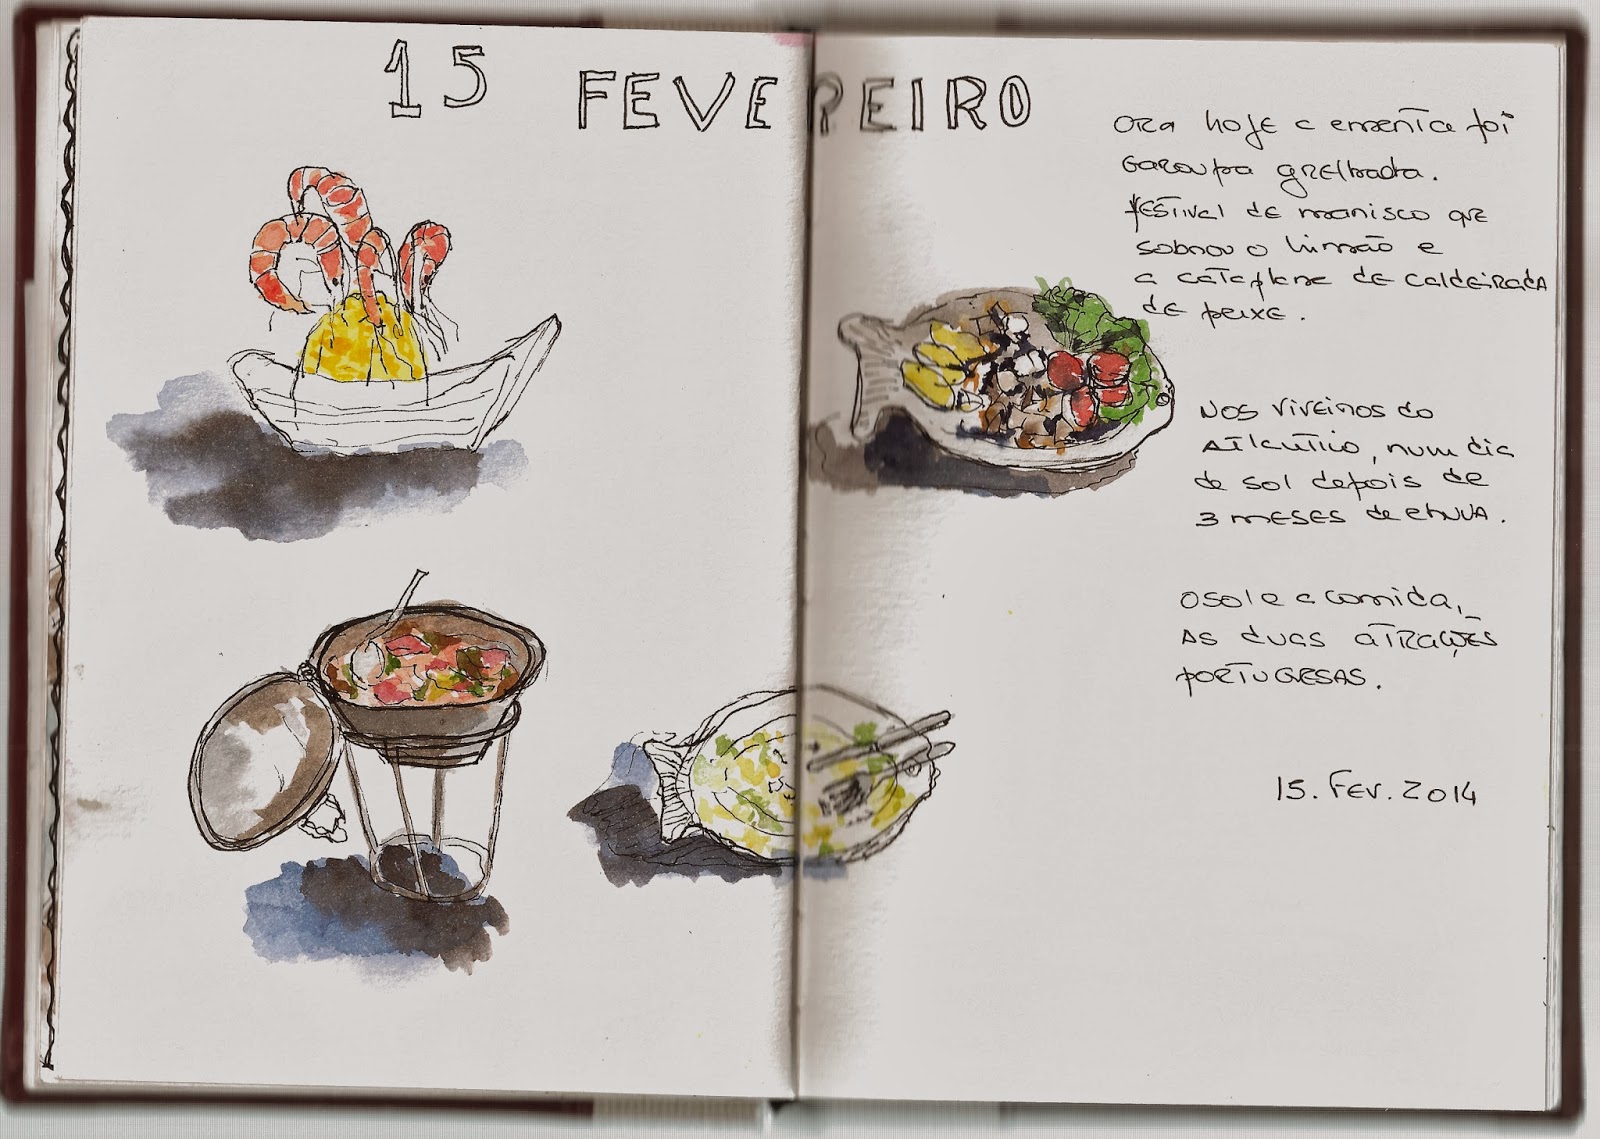 15 FEVEREIRO
ORA hoJE a ementa foi
Garoupa grelhada.
FESTIVAL DE marisco QUE
sobrou o
a cataplana DE CALDEIRADA
DE PEIXE.
NOS VIVEIROS do
ATLântico, num dia
de sol depois de
3 MESES de chuva.
O sol e a comida,
AS duas ATRAÇÕES
PORTUGUESAS.
15. FEV. 2014